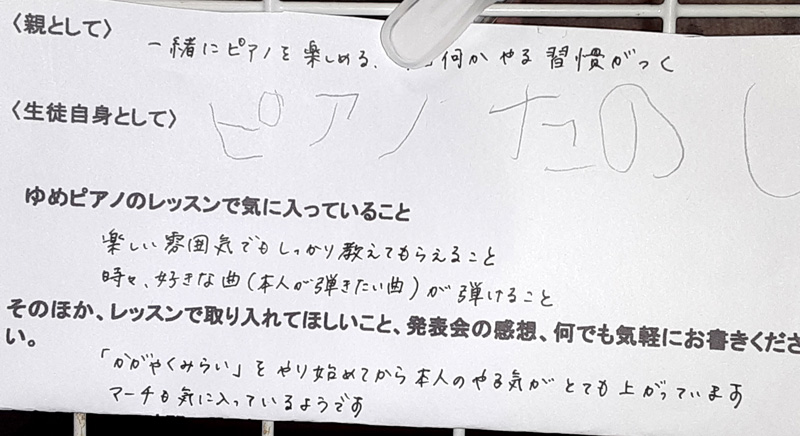 〈親として〉
一緒にピアノを楽しめる、何かやる習慣がつく
〈生徒自身として〉
ピアノたのし
ゆめピアノのレッスンで気に入っていること
楽しい雰囲気でもしっかり教えてもらえること
時々、好きな曲(本人が弾きたい曲)が弾けること
そのほか、レッスンで取り入れてほしいこと、発表会の感想、何でも気軽にお書きくださ
い。
「かがやくみらい」をやり始めてから本人のやる気がとても上がっています
マーチも気に入っているようです